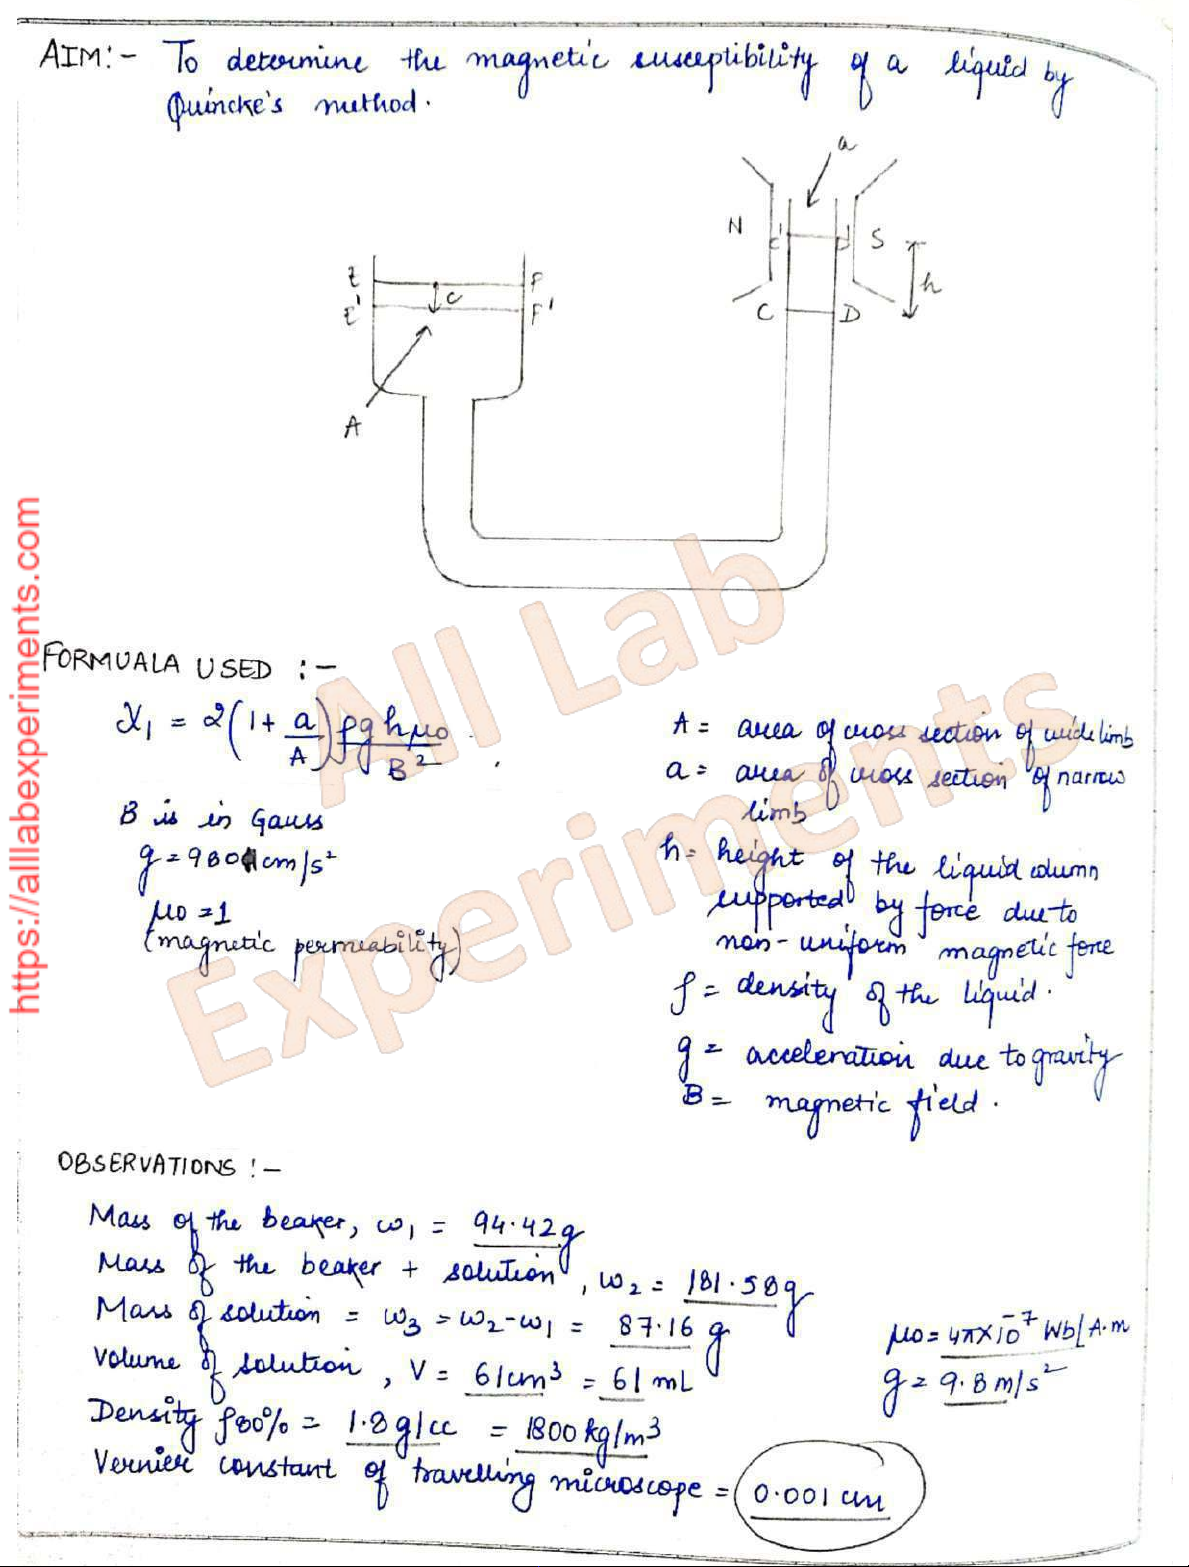 AIM:- To determine the magnetic susceptibility of a liquid by
Quincke's method.
a
N
C'
D'
S
h
C
D
E
F
c
E'
F'
A
https://alllabexperiments.com
All Lab
Experiments
FORMUALA USED :-
χ₁ = 2(1 + a/A) ρghμ0/B²
B is in Gauss
g = 980 cm/s²
μ0 = 1
(magnetic permeability)
A = area of cross section of wide limb
a = area of cross section of narrow
limb
h = height of the liquid column
supported by force due to
non-uniform magnetic force
ρ = density of the liquid.
g = acceleration due to gravity
B = magnetic field.
OBSERVATIONS :-
Mass of the beaker, ω₁ = 94.42g
Mass of the beaker + solution, ω₂ = 181.58g
Mass of solution = ω₃ = ω₂-ω₁ = 87.16 g
Volume of solution, V = 61cm³ = 61 mL
Density ρ80% = 1.8g/cc = 1800 kg/m³
Vernier constant of travelling microscope = 0.001 cm
μ0 = 4π×10⁻⁷ Wb/A.m
g = 9.8 m/s²